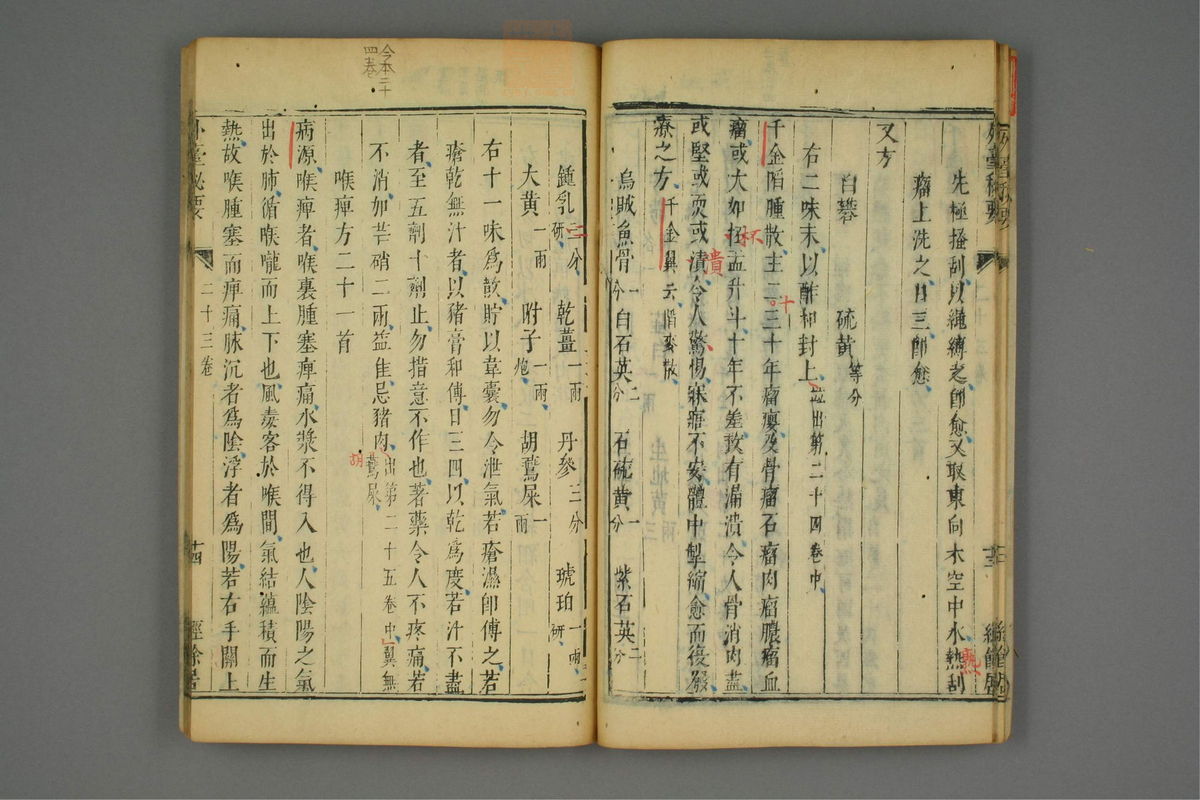 先極搔刮以繩縛之卽愈又取東向木空中水熱刮
瘤上洗之日三卽愈
又方
白礬 硫黃等分
右二味末以酢和封上竝出第二十四卷中
千金陷腫散主二三十年瘤癭及骨瘤石瘤肉瘤膿瘤血
瘤或大如杯盂升斗十年不差致有漏潰令人骨消肉盡
或堅或耎或潰令人驚惕寐寤不安體中掣縮愈而復發
療之方千金翼云陷脈散
烏賊魚骨一分 白石英二分 石硫黃一分 紫石英二分
鍾乳三分研 乾薑一兩 丹參三分 琥珀一兩研
大黃一兩 附子一兩炮 胡鷰屎一兩
右十一味為散貯以韋囊勿令泄氣若瘡濕卽傅之若
瘡乾無汁者以豬膏和傅日三四以乾為度若汁不盡
者至五劑十劑止勿惜意不作也著藥令人不疼痛若
不消加芒硝二兩益佳忌豬肉出第二十五卷中翼無鷰屎
喉痺方二十一首
病源喉痺者喉裏腫塞痺痛水漿不得入也人陰陽之氣
出於肺循喉嚨而上下也風毒客於喉間氣結蘊積而生
熱故喉腫塞而痺痛脉沉者為陰浮者為陽若右手關上
外臺祕要 二十三卷 十四 經餘居
今本二十
四卷
十
杯
潰
熱
胡